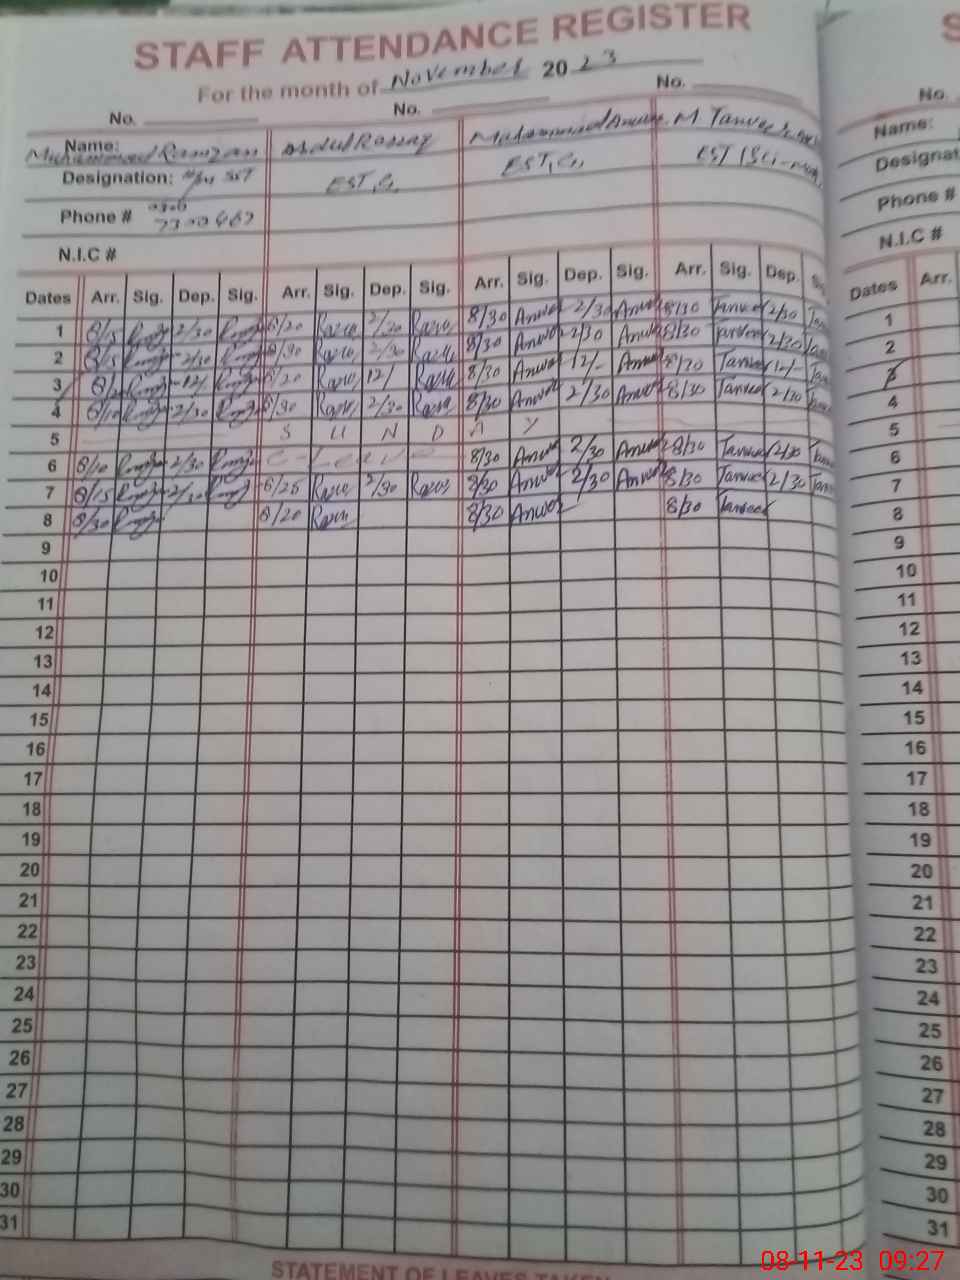 STAFF ATTENDANCE REGISTER
For the month of November 2023
No. No. No.
Name: Muhammad Ramzan Abdul Razzaq Muhammad Anwar M Tanveer
Designation: SST EST, G, EST, G, EST (Sci-
Phone # 0306
7300462
N.I.C #
Dates Arr. Sig. Dep. Sig. Arr. Sig. Dep. Sig. Arr. Sig. Dep. Sig. Arr. Sig. Dep. Sig.
1 8/15 2/30 8/20 2/30 8/30 Anwar 2/30 Anwar 8/30 Tanveer 2/30
2 8/15 2/30 8/30 2/30 8/30 Anwar 2/30 Anwar 8/30 Tanveer 2/30
3 8/20 12/- 8/20 12/ 8/30 Anwar 12/- Anwar 8/30 Tanveer 12/-
4 8/10 2/30 8/30 2/30 8/30 Anwar 2/30 Anwar 8/30 Tanveer 2/30
5 S U N D A Y
6 8/10 2/30 C-Leave 8/30 Anwar 2/30 Anwar 8/30 Tanveer 2/30
7 8/15 2/30 8/25 2/30 8/30 Anwar 2/30 Anwar 8/30 Tanveer 2/30
8 8/30 8/20 8/30 Anwar 8/30 Tanveer
9
10
11
12
13
14
15
16
17
18
19
20
21
22
23
24
25
26
27
28
29
30
31
STATEMENT OF LEAVES TAKEN
S
No.
Name:
Designat
Phone #
N.I.C #
Dates Arr.
1
2
3
4
5
6
7
8
9
10
11
12
13
14
15
16
17
18
19
20
21
22
23
24
25
26
27
28
29
30
31
08-11-23 09:27